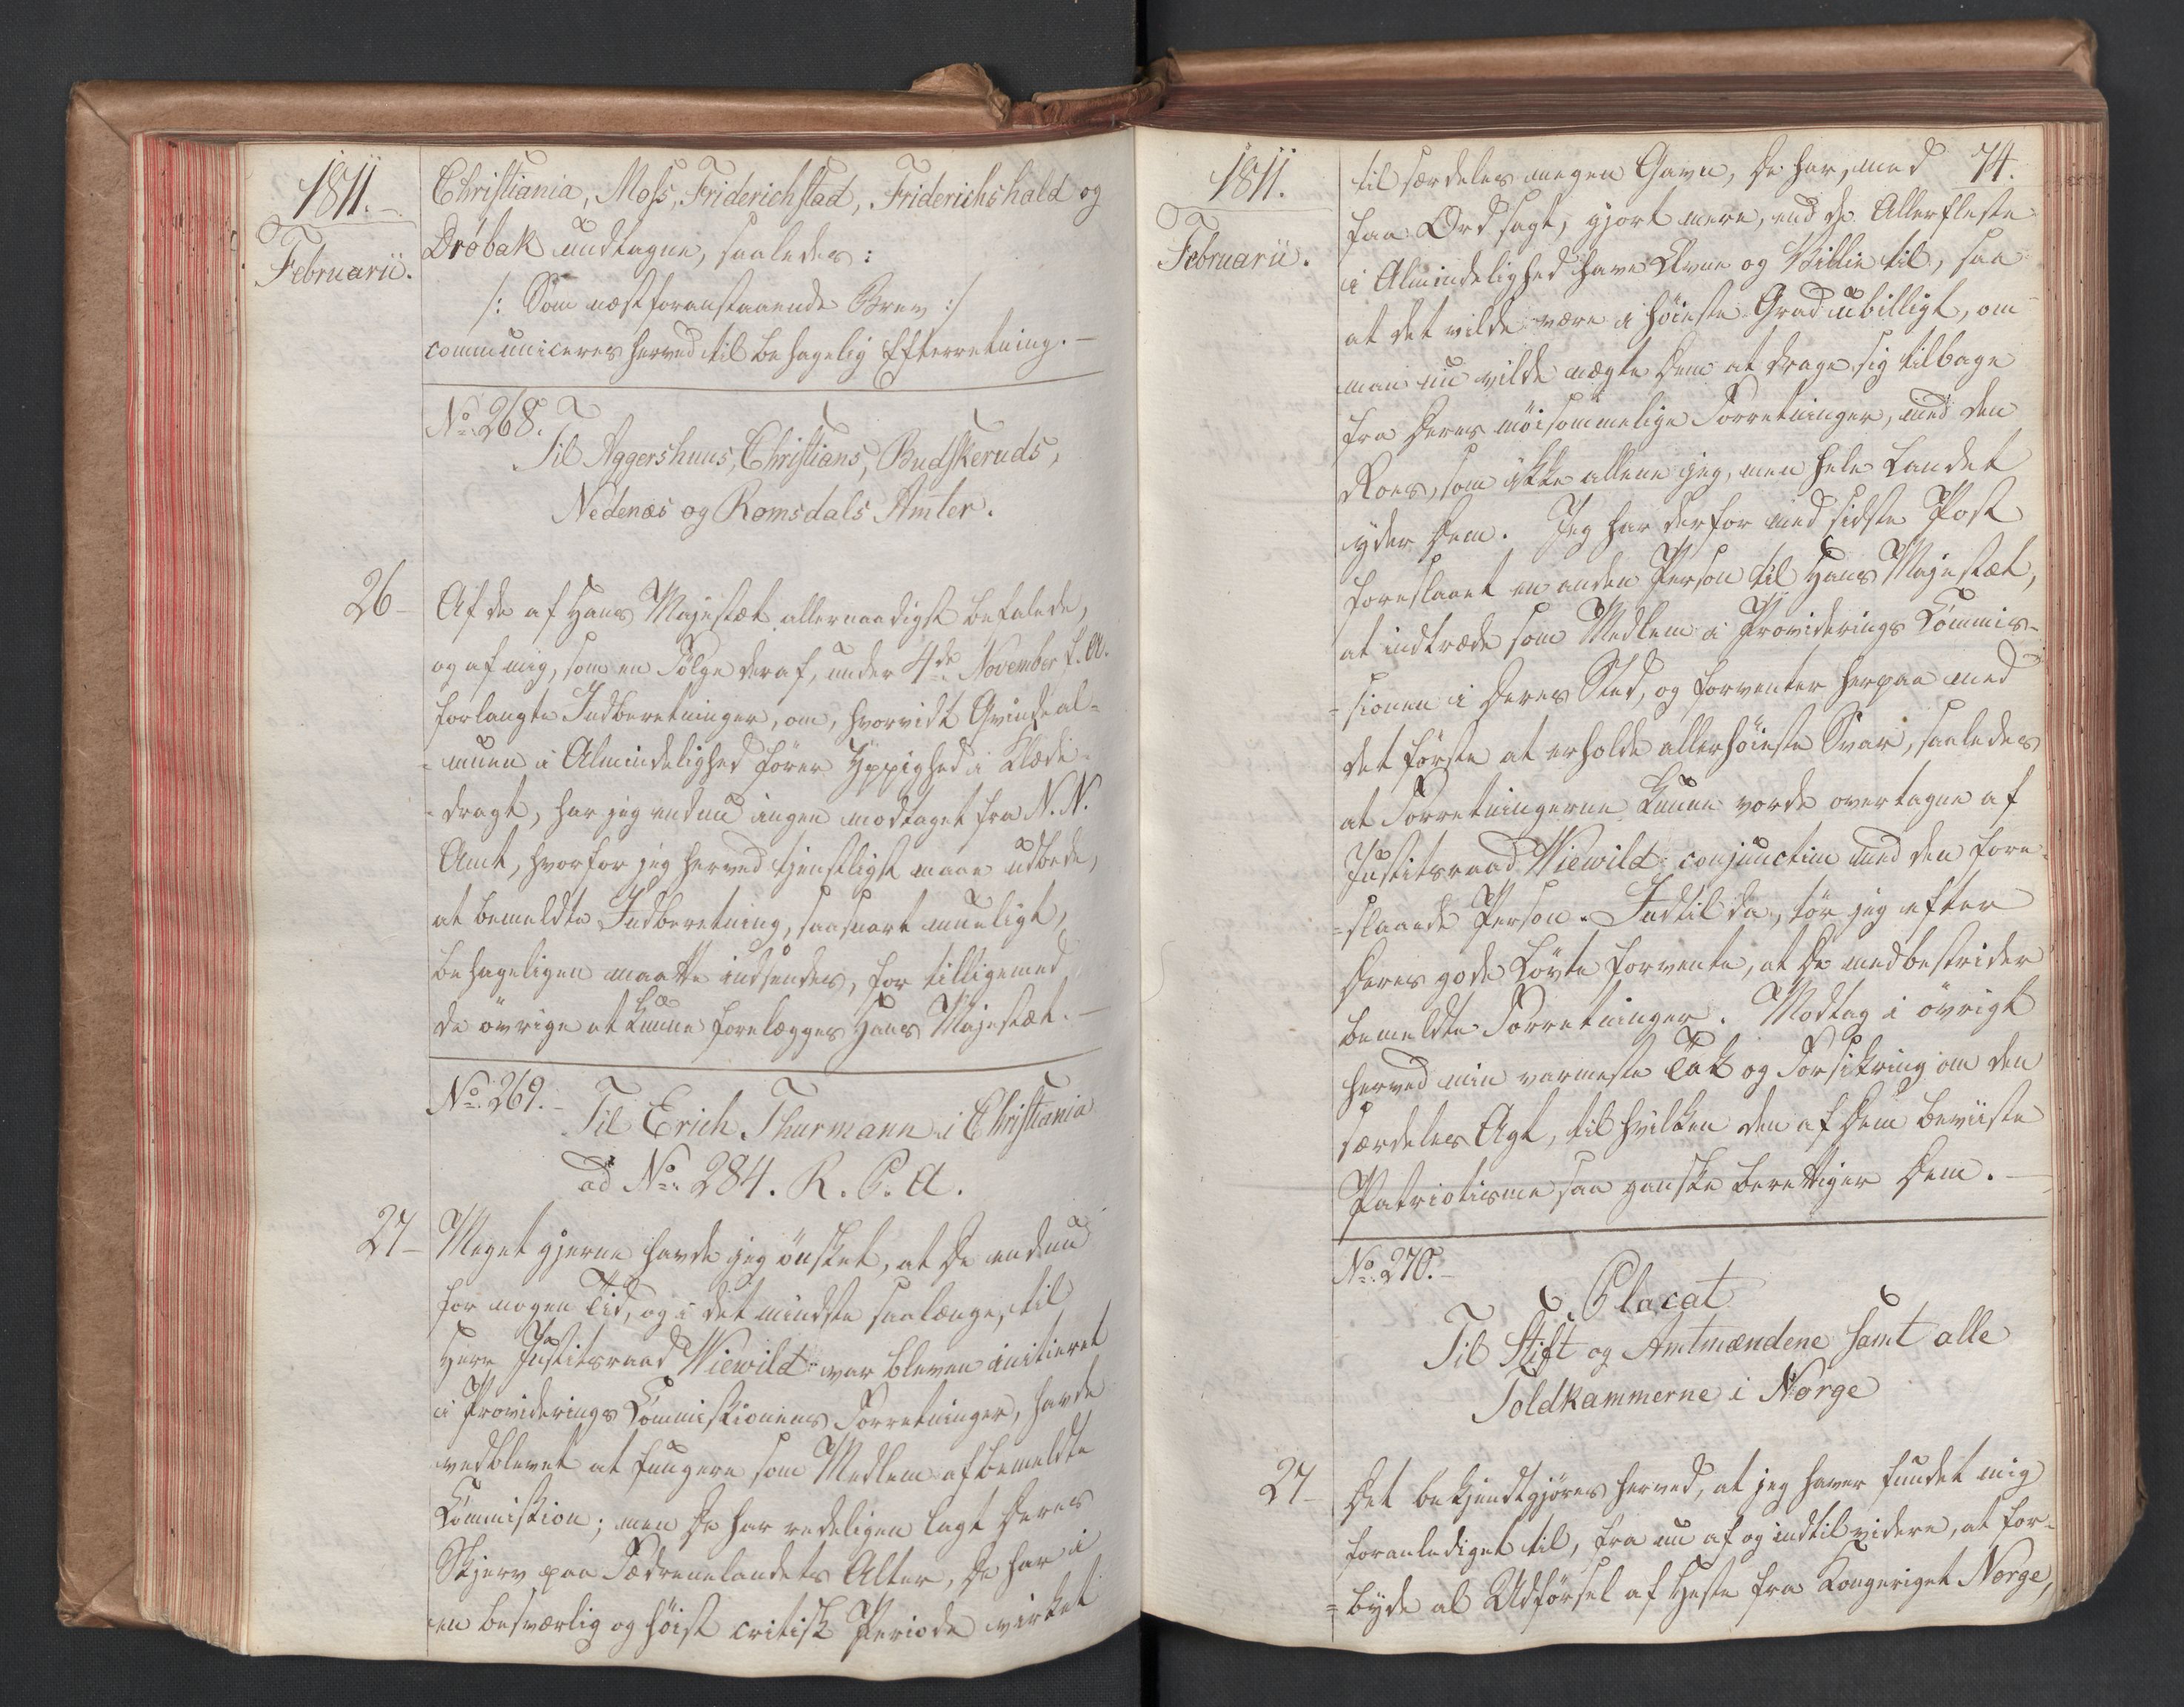 1811.
Februarii.
Christiania, Moss, Friderichstad, Friderichshald og
Drøbak undtagne, saaledes:
/: Som næstforanstaaende Brev :/
communiceres herved til behagelig Efterretning. —
No. 268.
Til Aggershuus, Christians, Budskeruds,
Nedenæs og Romsdals Amter.
26 —
Af de af Hans Majestæt allernaadigst befalede,
og af mig, som en Følge deraf, under 4de November f. A.
forlangte Indberetninger, om, hvorvidt Qvindeal-
=muen i Almindelighed fører Yppighed i Klæde-
=dragt, har jeg endnu ingen modtaget fra N. N.
Amt, hvorfor jeg herved tjenstligst maae udbede,
at bemeldte Indberetning, saasnart mueligt,
behageligen maatte indsendes, for tilligemed
de øvrige at kunne forelægges Hans Majestæt. —
No. 269. —
Til Erich Thurmann i Christiania
ad No. 284. R. P. A.
27 —
Meget gjerne havde jeg ønsket, at De endnu
for nogen Tid, og i det mindste saalænge, til
Herr Justitsraad Wiewild var bleven initieret
i Providerings Commissionens Forretninger, havde
vedblevet at fungere som Medlem af bemeldte
Commission; men De har redeligen lagt Deres
Skjerv paa Fædrenelandets Alter, De har i
en besværlig og høist critisk Periode virket
1811.
Februarii.
74.
til særdeles megen Gavn, De har, med
faa Ord sagt, gjort mere, end de Allerfleste
i Almindelighed have Evne og Villie til, saa
at det vilde være i høieste Grad ubilligt, om
man nu vilde nægte Dem at drage sig tilbage
fra Deres møisommelige Forretninger, med den
Roes, som ikke allene jeg, men hele Landet
yder Dem. Jeg har derfor med sidste Post
foreslaaet en anden Person til Hans Majestæt,
at indtræde som Medlem i Providerings Commis-
=sionen i Deres Sted, og forventer herpaa med
det første at erholde allerhøieste Svar, saaledes
at Forretningerne kunne vorde overtagne af
Justitsraad Wiewild conjunctim med den fore-
=slaaede Person. Indtil da, tør jeg efter
Deres gode Løvte forvente, at De medbestrider
bemeldte Forretninger. Modtag i øvrigt
herved min varmeste Tak og Forsikring om den
særdeles Agt, til hvilken den af Dem beviiste
Patriotisme saa ganske berettiger Dem. —
No. 270. —
Placat
Til Stift og Amtmændene samt alle
Toldkammerne i Norge
27 —
Det bekjendtgjøres herved, at jeg haver fundet mig
foranlediget til, fra nu af og indtil videre, at for-
=byde al Udførsel af Heste fra Kongeriget Norge,